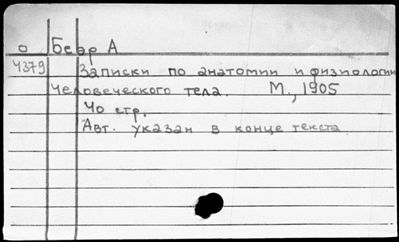 О Беер А
4379 Записки по анатомии и физиологии
Человеческого тела. М., 1905
40 стр.
Авт. указан в конце текста